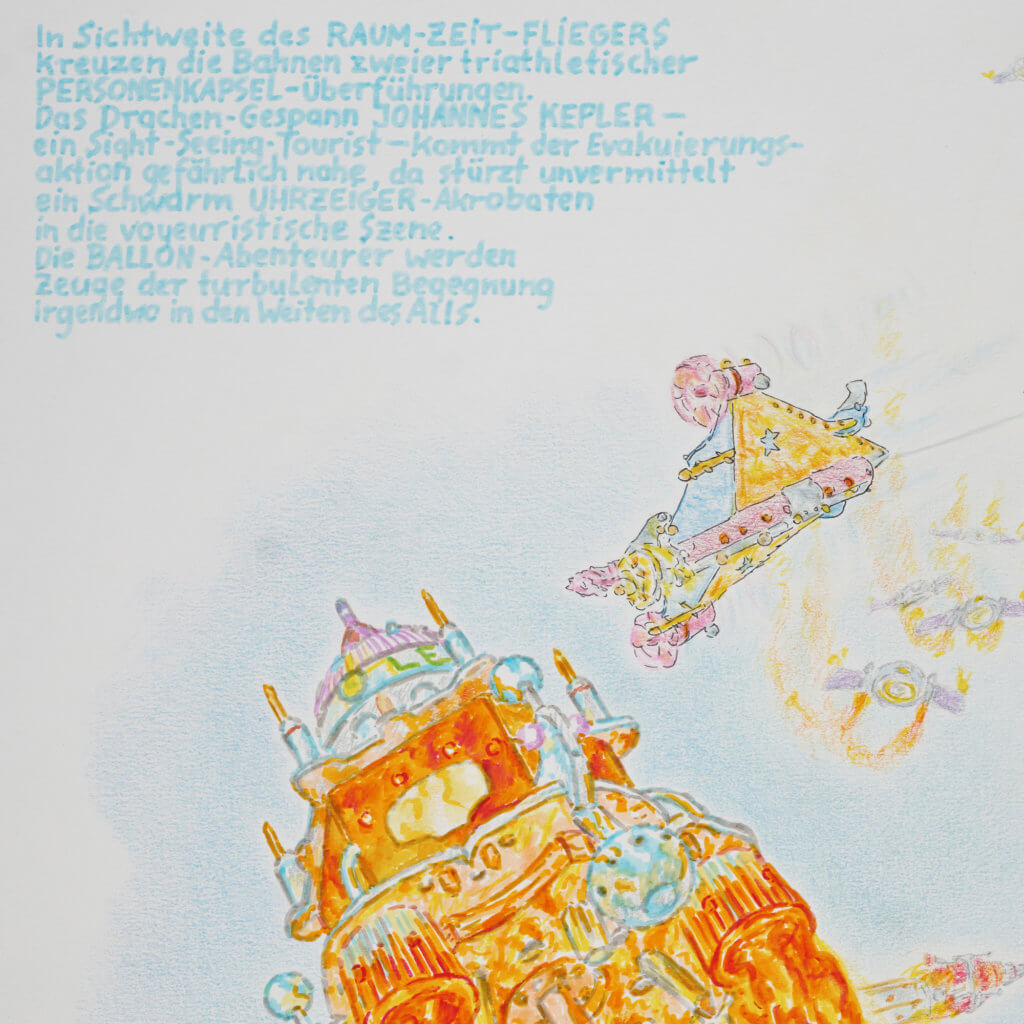 In Sichtweite des RAUM-ZEIT-FLIEGERS
kreuzen die Bahnen zweier triathletischer
PERSONENKAPSEL-Überführungen.
Das Drachen-Gespann JOHANNES KEPLER –
ein Sight-Seeing-Tourist – kommt der Evakuierungs-
aktion gefährlich nahe, da stürzt unvermittelt
ein Schwarm UHRZEIGER-Akrobaten
in die voyeuristische Szene.
Die BALLON-Abenteurer werden
Zeuge der turbulenten Begegnung
irgendwo in den Weiten des Alls.